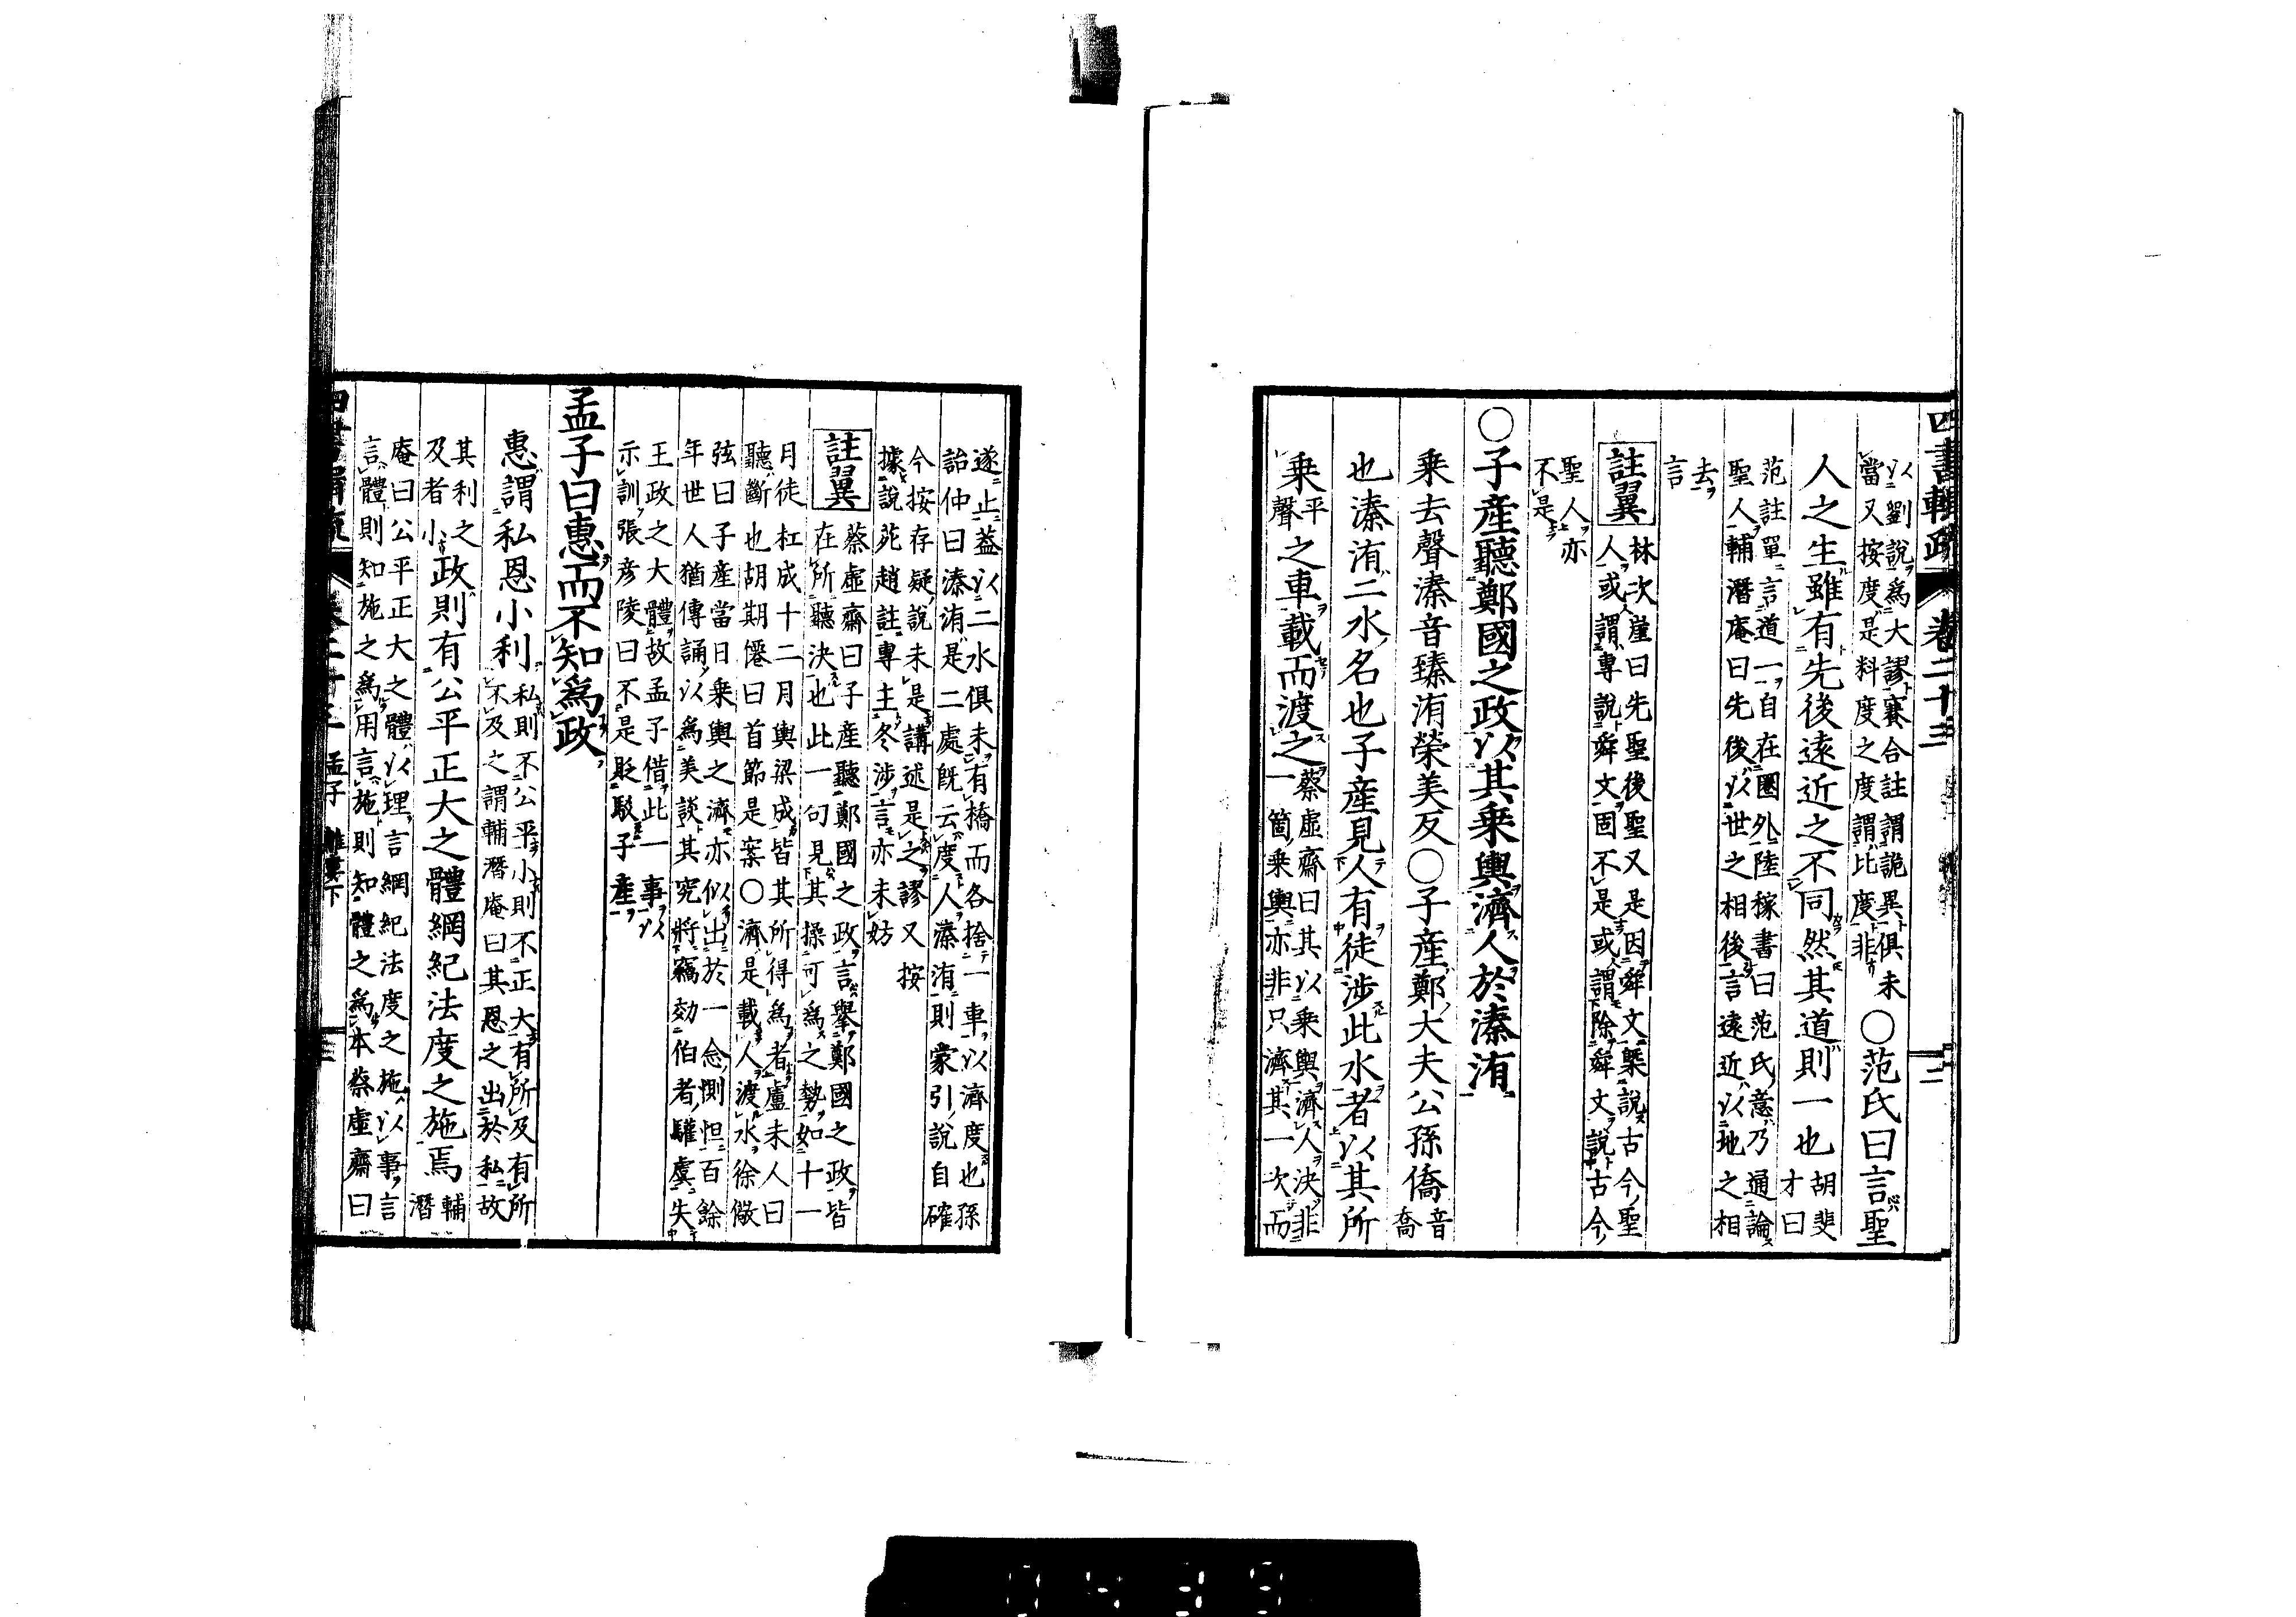 四書輯疏 卷二十三 二
以劉說爲大謬賽合註謂詭異俱未
當又按度是料度之度謂比度非 ○范氏曰言聖
人之生雖有先後遠近之不同然其道則一也 胡斐
才曰
范註單言道一自在圈外陸稼書曰范氏意乃通論
聖人輔潛庵曰先後以世之相後言遠近以地之相
去
言
註翼 林次崖曰先聖後聖又是因舜文槩說古今聖
人或謂專說舜文固不是或謂除舜文說古今
聖人亦
不是
○子產聽鄭國之政以其乘輿濟人於溱洧
乘去聲溱音臻洧榮美反○子產鄭大夫公孫僑 音
喬
也溱洧二水名也子產見人有徒涉此水者以其所
乘 平
聲 之車載而渡之 蔡虛齋曰其以乘輿濟人決非
一箇乘輿亦非只濟其一次而
遂止蓋以二水俱未有橋而各捨一車以濟度也孫
詒仲曰溱洧是二處旣云度人溱洧則蒙引說自確
今按存疑說未是講述是之謬又按
據說苑趙註專主冬涉言亦未妨
註翼 蔡虛齋曰子產聽鄭國之政言舉鄭國之政皆
在所聽決也此一句見其操可爲之勢如十一
月徒杠成十二月輿梁成皆其所得爲者盧未人曰
聽斷也胡期僊曰首節是案○濟是載人渡水徐儆
弦曰子產當日乘輿之濟亦似出於一念惻怛百餘
年世人猶傳誦以爲美談其究將竊効伯者驩虞失
王政之大體故孟子借此一事以
示訓張彦陵曰不是貶駁子產
孟子曰惠而不知爲政
惠謂私恩小利 私則不公平小則不正大有所及有所
不及之謂輔潛庵曰其恩之出於私故
其利之
及者小 政則有公平正大之體綱紀法度之施焉 輔
潛
庵曰公平正大之體以理言綱紀法度之施以事言
言體則知施之爲用言施則知體之爲本蔡虛齋曰
孟子 離婁下